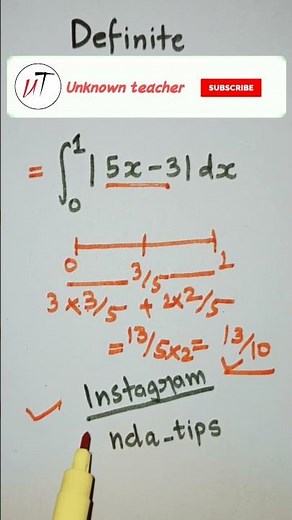 Definite
UT Unknown teacher SUBSCRIBE
= ∫₀¹ | 5x - 3 | dx
0 3/5 1
3 x 3/5 + 2x2/5
= 13/5x2 = 13/10
Instagram
nda_tips